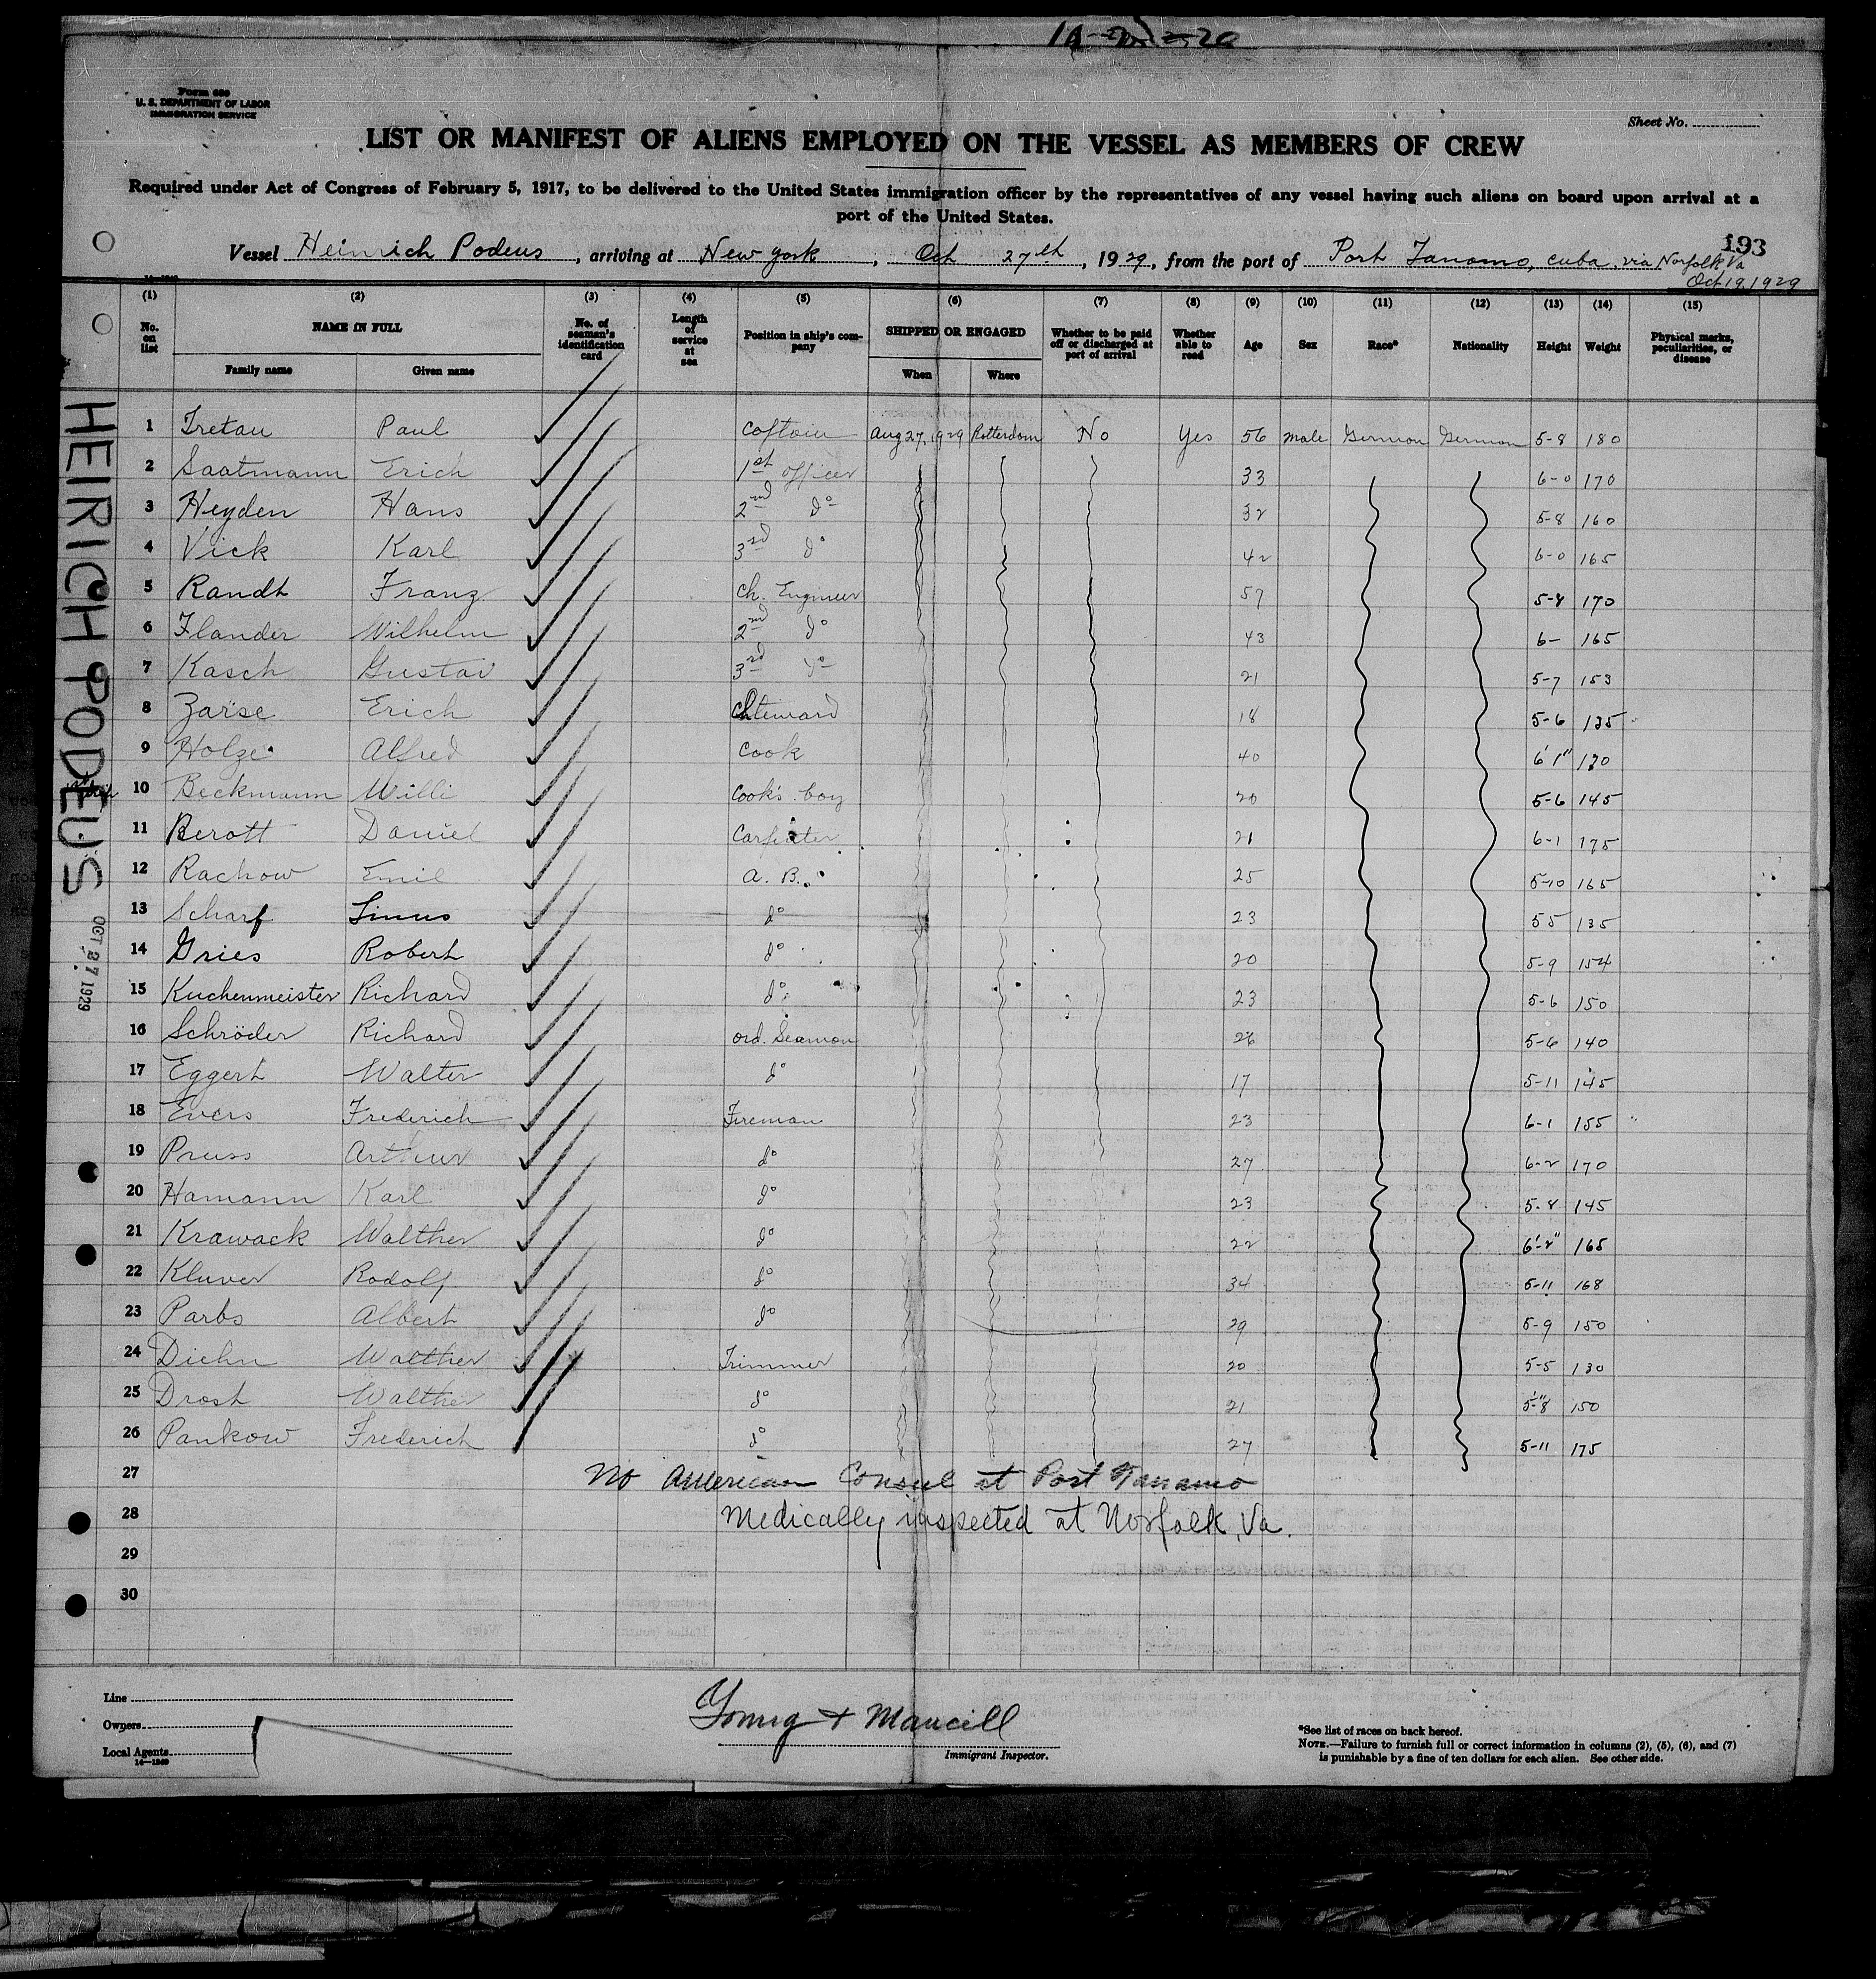 Form 689
U. S. DEPARTMENT OF LABOR
IMMIGRATION SERVICE
Sheet No.
LIST OR MANIFEST OF ALIENS EMPLOYED ON THE VESSEL AS MEMBERS OF CREW
Required under Act of Congress of February 5, 1917, to be delivered to the United States immigration officer by the representatives of any vessel having such aliens on board upon arrival at a
port of the United States.
193
Vessel Heinrich Podeus, arriving at New York, Oct 27th, 1929, from the port of Port Tanamo, Cuba, via Norfolk Va
Oct 19, 1929
(1) (2) (3) (4) (5) (6) (7) (8) (9) (10) (11) (12) (13) (14) (15)
No. on list NAME IN FULL No. of seaman's identification card Length of service at sea Position in ship's company SHIPPED OR ENGAGED Whether to be paid off or discharged at port of arrival Whether able to read Age Sex Race* Nationality Height Weight Physical marks, peculiarities, or disease
Family name Given name When Where
1 Tretau Paul Captain Aug 27, 1929 Rotterdam No Yes 56 male German German 5-8 180
2 Saatmann Erich 1st officer 33 6-0 170
3 Heyden Hans 2nd do 32 5-8 160
4 Vick Karl 3rd do 42 6-0 165
5 Randt Franz Ch. Engineer 57 5-8 170
6 Flander Wilhelm 2nd do 43 6- 165
7 Kasch Gustav 3rd do 21 5-7 153
8 Zarse Erich Steward 18 5-6 125
9 Holze Alfred Cook 40 6'1" 170
10 Beckmann Willi Cook's boy 20 5-6 145
11 Berott Daniel Carpenter 21 6-1 175
12 Rachow Emil A. B. 25 5-10 165
13 Scharf Linus do 23 5 5 135
14 Gries Robert do 20 5-9 154
15 Kuchenmeister Richard do 23 5-6 150
16 Schröder Richard ord. Seaman 26 5-6 140
17 Eggert Walter do 17 5-11 145
18 Evers Frederich Fireman 23 6-1 155
19 Preuss Arthur do 27 6-2 170
20 Hamann Karl do 23 5-8 145
21 Krawack Walther do 22 6'-2" 165
22 Kluver Rodolf do 34 5-11 168
23 Parbs Albert do 29 5-9 150
24 Diehn Walther Trimmer 20 5-5 130
25 Drost Walther do 21 5'-8" 150
26 Pankow Frederich do 27 5-11 175
27 No American Consul at Port Tanamo
28 Medically inspected at Norfolk, Va.
29
30
HEIRICH PODEUS
OCT 27 1929
Line
Owners
Local Agents
14—1240
Young + Mancill
Immigrant Inspector.
*See list of races on back hereof.
NOTE.—Failure to furnish full or correct information in columns (2), (5), (6), and (7)
is punishable by a fine of ten dollars for each alien. See other side.